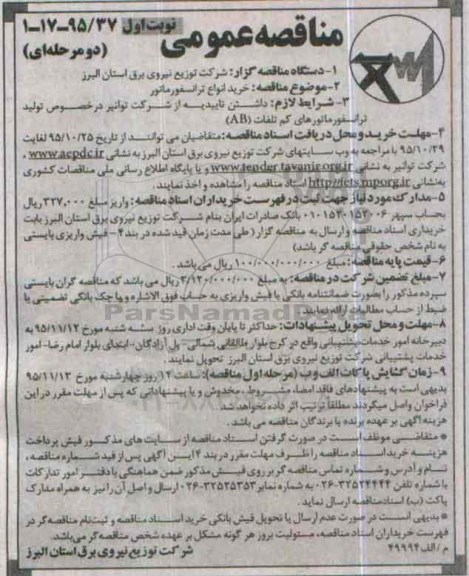 نوبت اول ۹۵/۳۷-۱۷-۱
مناقصه عمومی
(دو مرحله‌ای)
۱-دستگاه مناقصه گزار: شرکت توزیع نیروی برق استان البرز
۲-موضوع مناقصه: خرید انواع ترانسفورماتور
۳- شرایط لازم: داشتن تاییدیه از شرکت توانیر درخصوص تولید
ترانسفورماتورهای کم تلفات (AB)
۴-مهلت خرید و محل دریافت اسناد مناقصه: متقاضیان می توانند از تاریخ ۹۵/۱۰/۲۵ لغایت
۹۵/۱۰/۲۹ با مراجعه به وب سایتهای شرکت توزیع نیروی برق استان البرز به نشانی www.aepdc.ir ،
شرکت توانیر به نشانی www.tender.tavanir.org.ir و یا پایگاه اطلاع رسانی ملی مناقصات کشوری
به‌نشانی http://iets.mporg.ir اسناد مناقصه را مشاهده و اخذ نمایند.
۵-مدارک مورد نیاز جهت ثبت در فهرست خریداران اسناد مناقصه: واریز مبلغ ۳۲۷,۰۰۰ ریال
بحساب سپهر ۰۱۰۱۵۴۰۱۵۳۰۰۶ بانک صادرات ایران بنام شرکت توزیع نیروی برق استان البرز بابت
خریداری اسناد مناقصه و ارسال به مناقصه گزار (طی مدت زمان قید شده در بند ۴ - فیش واریزی بایستی
به نام شخص حقوقی مناقصه گر باشد)
۶-قیمت پایه مناقصه: مبلغ ۱۰۰/۰۰۰/۰۰۰/۰۰۰ ریال می باشد.
۷-مبلغ تضمین شرکت در مناقصه: به مبلغ ۳/۱۲۰/۰۰۰/۰۰۰ ریال می باشد که مناقصه گران بایستی
سپرده مذکور را بصورت ضمانتنامه بانکی یا فیش واریزی به حساب فوق الاشاره و یا چک بانکی تضمینی یا
ضبط از حساب مطالبات ارائه نمایند.
۸-مهلت و محل تحویل پیشنهادات: حداکثر تا پایان وقت اداری روز سه شنبه مورخ ۹۵/۱۱/۱۲ به
دبیرخانه امور خدمات پشتیبانی واقع در کرج بلوار طالقانی شمالی- پل آزادگان- ابتدای بلوار امام رضا- امور
خدمات پشتیبانی شرکت توزیع نیروی برق استان البرز تحویل نمایند.
۹-زمان گشایش پاکات الف و ب (مرحله اول مناقصه): ساعت ۱۲ روز چهارشنبه مورخ ۹۵/۱۱/۱۳
بدیهی است به پیشنهادهای فاقد امضاء، مشروط، مخدوش و یا پیشنهاداتی که پس از مهلت مقرر در این
فراخوان واصل میگردند مطلقا ترتیب اثر داده نخواهد شد.
هزینه آگهی بر عهده برنده یا برندگان مناقصه می باشد.
* متقاضی موظف است در صورت گرفتن اسناد مناقصه از سایت های مذکور فیش پرداخت
هزینه خرید اسناد مناقصه را ظرف مهلت مقرر در بند ۴ این آگهی پس از قید شماره مناقصه،
نام و آدرس و شماره تماس مناقصه گر بر روی فیش مذکور ضمن هماهنگی با دفتر امور تدارکات
با شماره تلفن ۳۲۵۲۴۴۴۴-۰۲۶ به شماره نمابر ۳۲۵۲۵۳۵۳-۰۲۶ ارسال و اصل آن را نیز به همراه مدارک
پاکت (ب) اسناد مناقصه ارسال نماید.
* بدیهی است در صورت عدم ارسال یا تحویل فیش بانکی خرید اسناد مناقصه و ثبت‌نام مناقصه‌گر در
فهرست خریداران اسناد مناقصه، مسئولیت بروز هر گونه مشکل بر عهده شخص مناقصه‌گر می‌باشد.
م / الف ۴۹۹۹۴
شرکت توزیع نیروی برق استان البرز